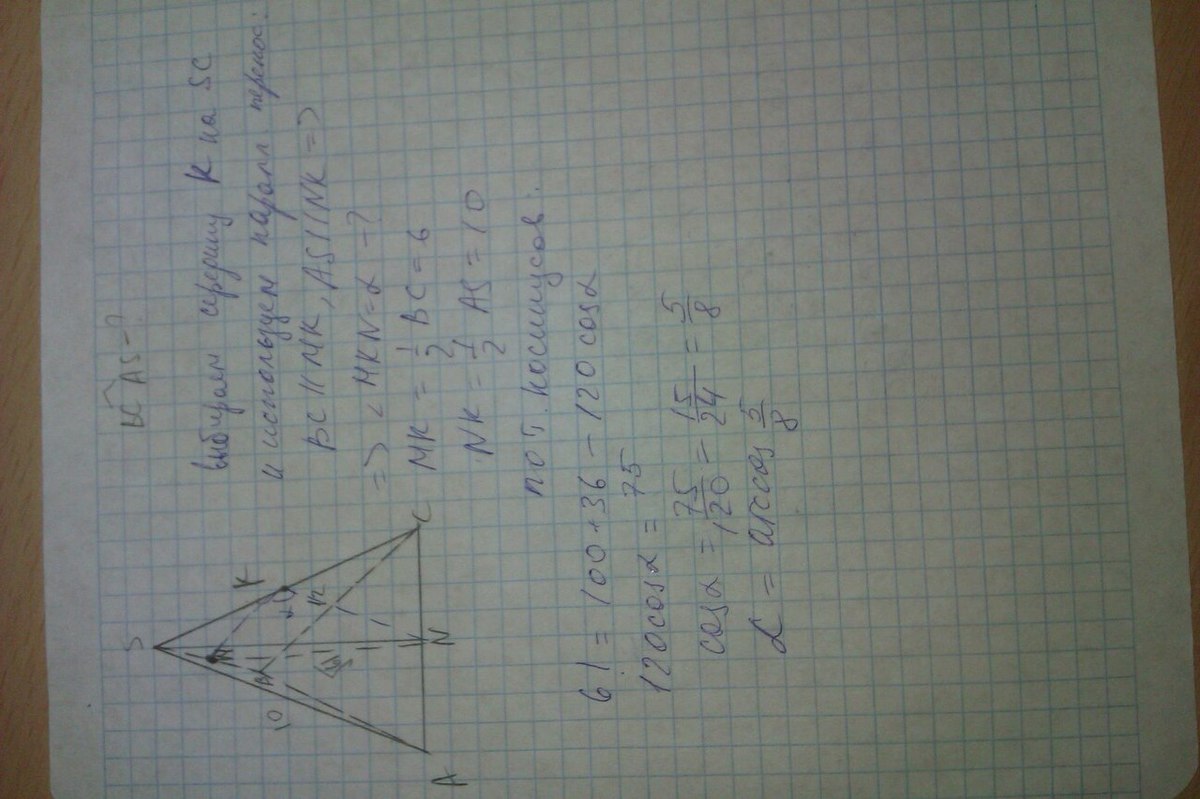 BC AS - ?
выбираем середину K на SC
и используем паралл. перенос:
BC || MK, AS || NK =>
=> ∠ MKN = α - ?
MK = 1/2 BC = 6
NK = 1/2 AS = 10
по т. косинусов:
61 = 100 + 36 - 120 cos α
120 cos α = 75
cos α = 75/120 = 15/24 = 5/8
α = arccos 5/8
S
K
M
B
12
10
C
N
A